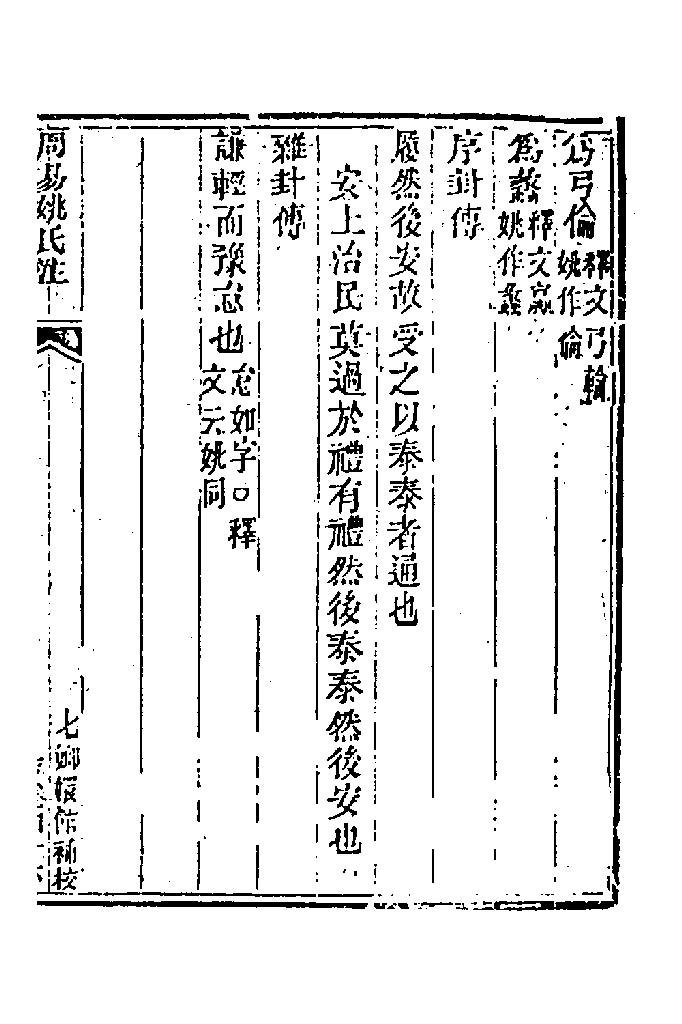 為弓倫釋文弓輪
姚作倫
為蠡釋文蠃
姚作蠡
序卦傳
履然後安故受之以泰泰者通也
安上治民莫過於禮有禮然後泰泰然後安也
雜卦傳
謙輕而豫怠也怠如字〇釋
文云姚同
周易姚氏注
七嫏嬛館補校